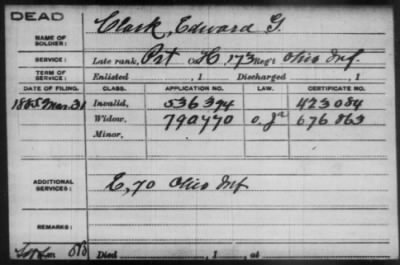 DEAD
NAME OF SOLDIER: Clark, Edward G.
SERVICE: Late rank, Pvt Co. H, 173 Reg't Ohio Inf.
TERM OF SERVICE: Enlisted , 1 Discharged , 1
DATE OF FILING. CLASS. APPLICATION NO. LAW. CERTIFICATE NO.
1885 Mar. 31 Invalid, 536394 423084
Widow, 790770 676063
Minor,
ADDITIONAL SERVICES: E, 70 Ohio Inf
REMARKS:
Died , 1 , at